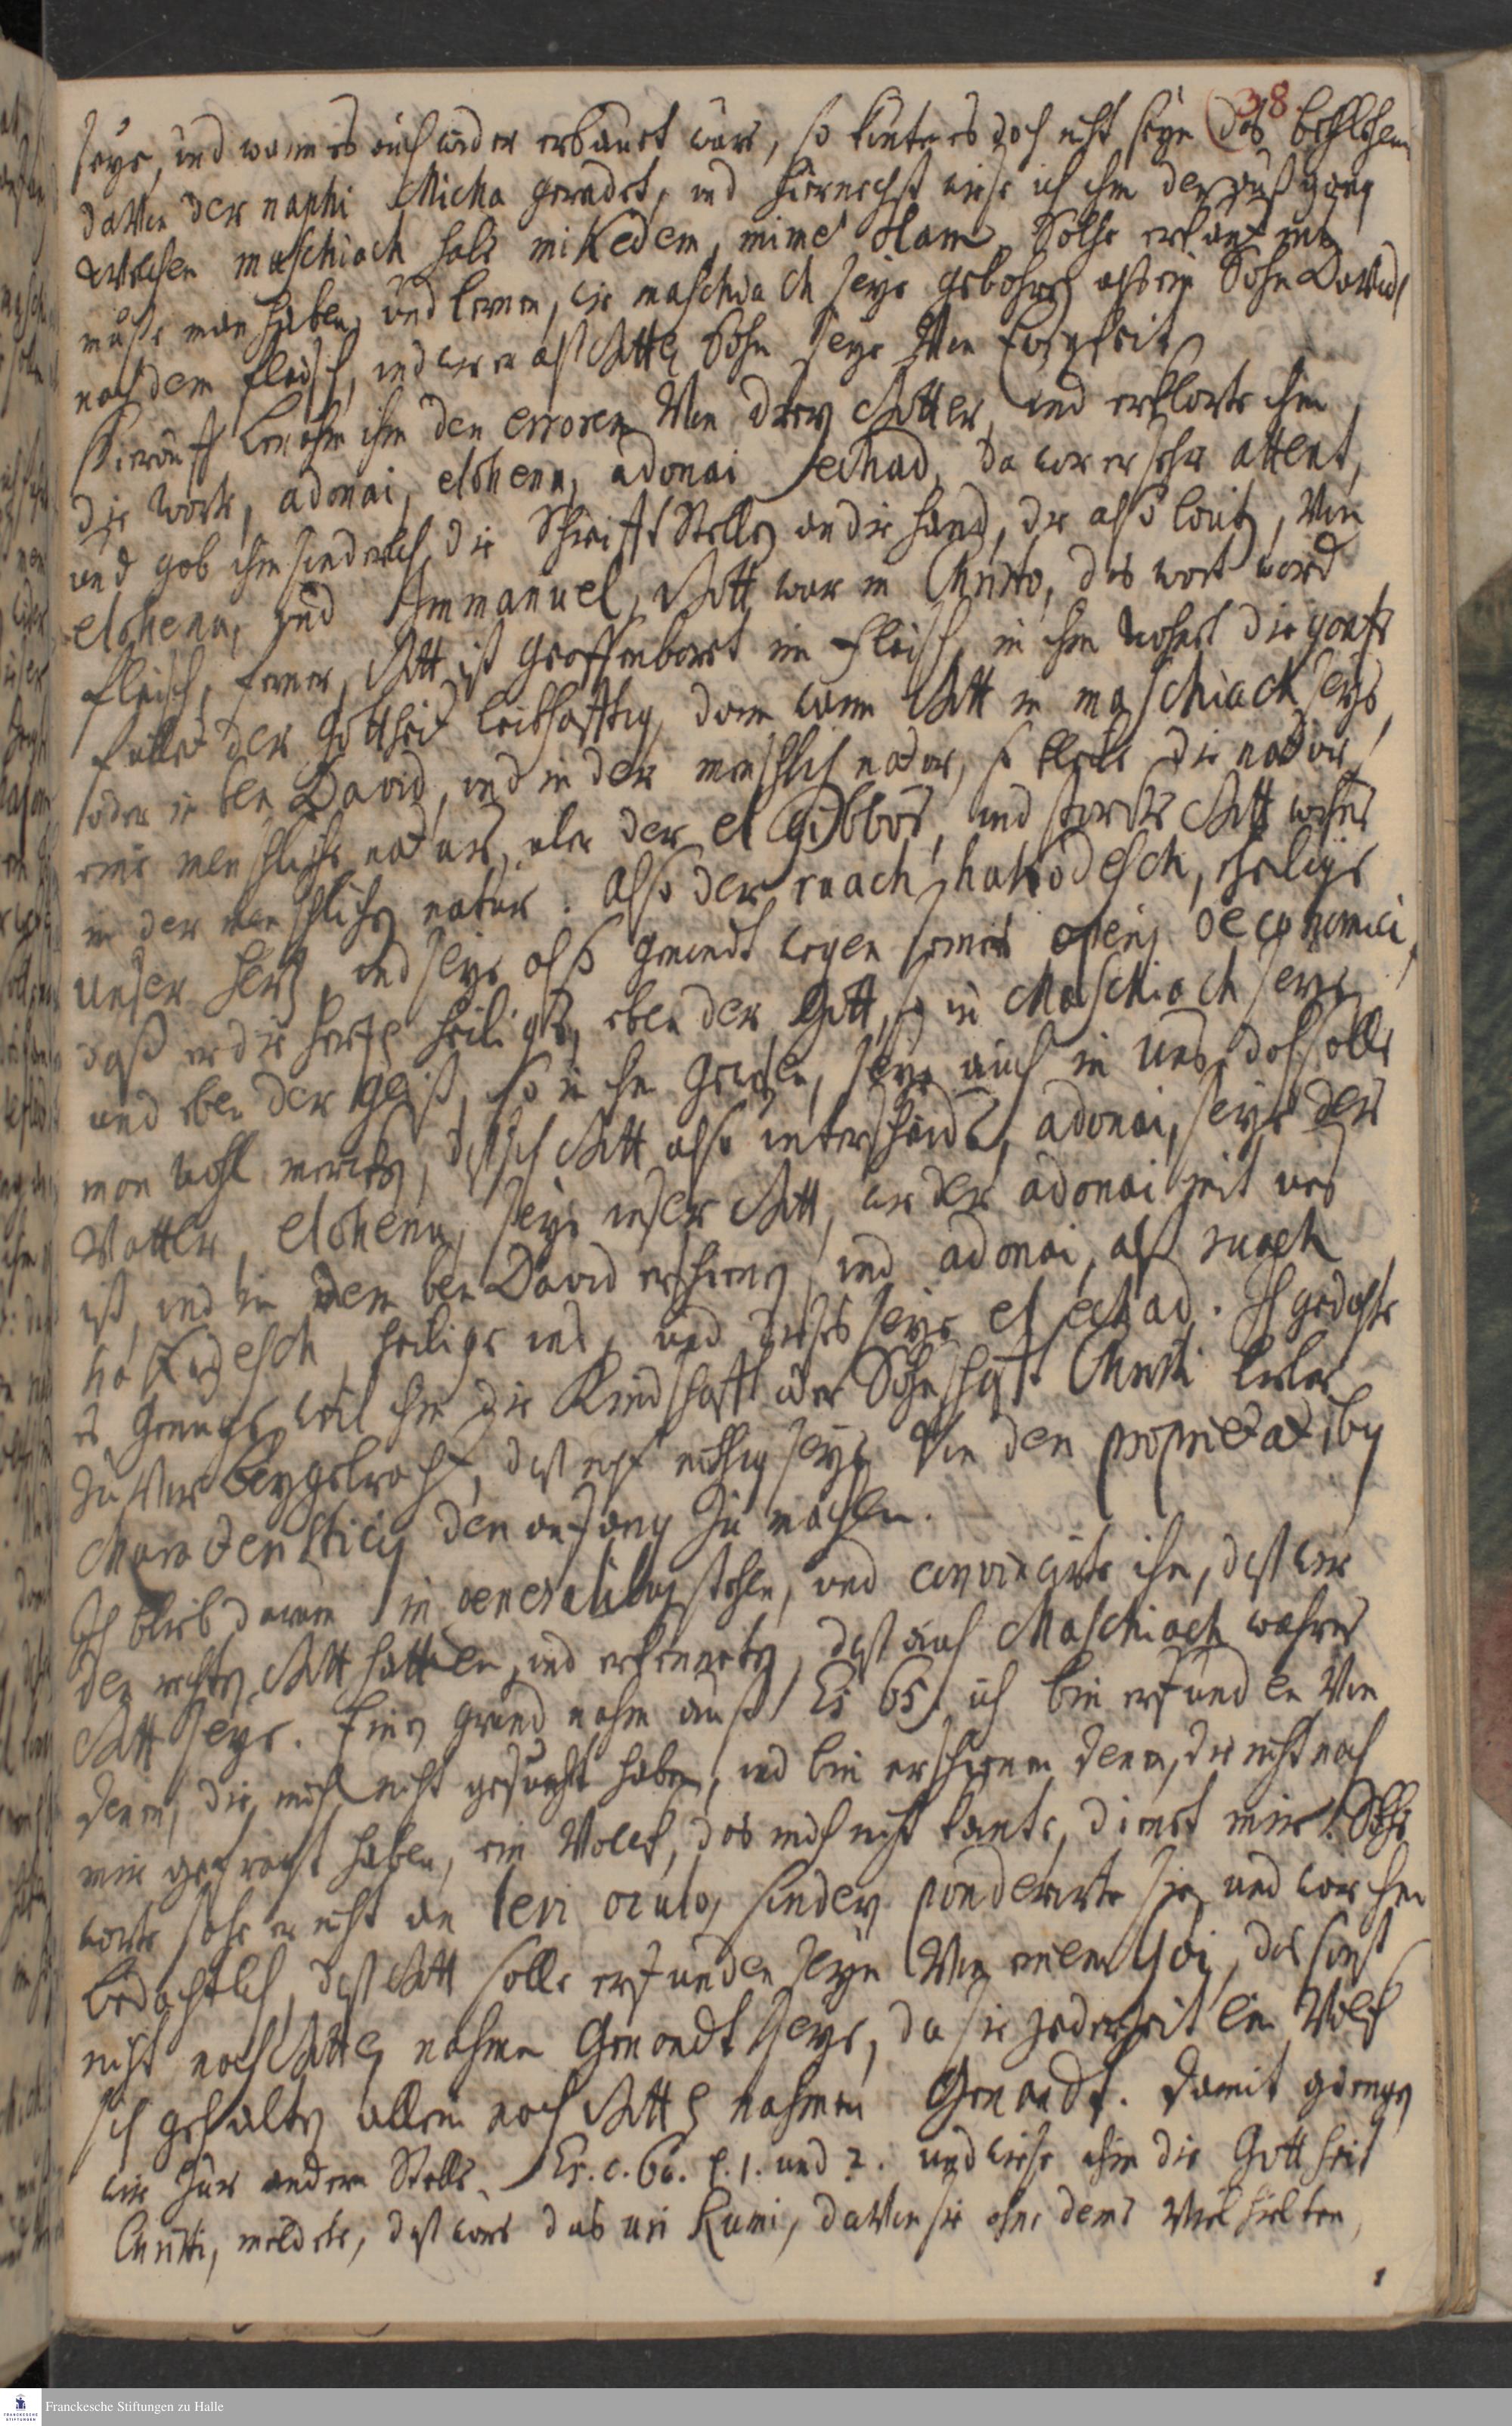 38
seye, und wann es auch wider erbauet wäre, so könte es doch nicht seyn das Bethlehem
davon der naphi Micha geredet, und hiernechst wiese ich ihm den außgang
welchen maschiach habe mikedem, mime olam. Solche erkäntnus
müße man haben, und lernen, wie maschiach seye gebohren als ein Sohn Davids
nach dem fleisch, und wie er als Gottes Sohn seye von Ewigkeit
Hierauff benahm ihm den errorem von drey Götter, und erklärte ihm
die wort, adonai, elohenu, adonai echad, da war er sehr attent,
und gab ihm sonderlich die Schrifft Stellen an die hand, die also lauten, von
elohenu, und Immanuel, Gott war in Christo, das wort ward
fleisch, ferner, Gott ist geoffenbaret im fleisch, in ihm wohnet die gantze
fülle der Gottheit leibhafftig, dann wann Gott in maschiach seye,
oder in ben David, und in der menschlich natur, so bleibe die natur
eine menschliche natur, aber der el gibbor, und starcke Gott wohne
in der menschlichen natur. Also der ruach hakodesch, heilige
unser hertz, und seye also genandt wegen seines operis oeconomici,
daß er die hertzen heilige, eben der Gott, so in Maschiach seye
und eben der Geist, so in ihn gewesen, seye auch in uns, doch solle
man wohl mercken, daß sich Gott also unterscheide, adonai, seye der
Vatter, elohenu, seye unser Gott, wie der adonai mit uns
ist, und in dem ben David erschienen, und adonai, als ruach
hakodesch, heilige uns, und dieses seye el echad. Ich gedachte
es genug, weil ihm die Kindschafft oder Sohnschafft Christi bisher
zuvor beygebracht, daß nicht nöthig seye von den proprietatibus
characteristicis den anfang zu machen.
Ich blieb darum in generalibus stehen, und convincirte ihn, daß wir
den rechten Gott hatten, und erkenneten, daß auch Maschiach wahrer
Gott seye. Einen grund nahm auß Es 65. ich bin erfunden von
denen, die mich nicht gesucht haben, und bin erschienen denen, die nicht nach
mir gefragt haben, ein Volck, das mich nicht kante, dienet mir. Solche
worte sahe er nicht an levi oculo, sondern ponderirte sie, und war ihm
bedächtlich, daß Gott solle erfunden seyn von einem Goi, das sonst
nicht nach Gottes nahmen genandt seye, da sie jederzeit ein Volck
sich gehalten allein nach Gottes nahmen genandt. Damit giengen
wir zur andern Stelle. Es. c. 60. v. 1. und 2. und wiese ihm die Gottheit
Christi, meldete, daß was das uri Kumi, davon sie ohne dem viel hielten,
Franckesche Stiftungen zu Halle